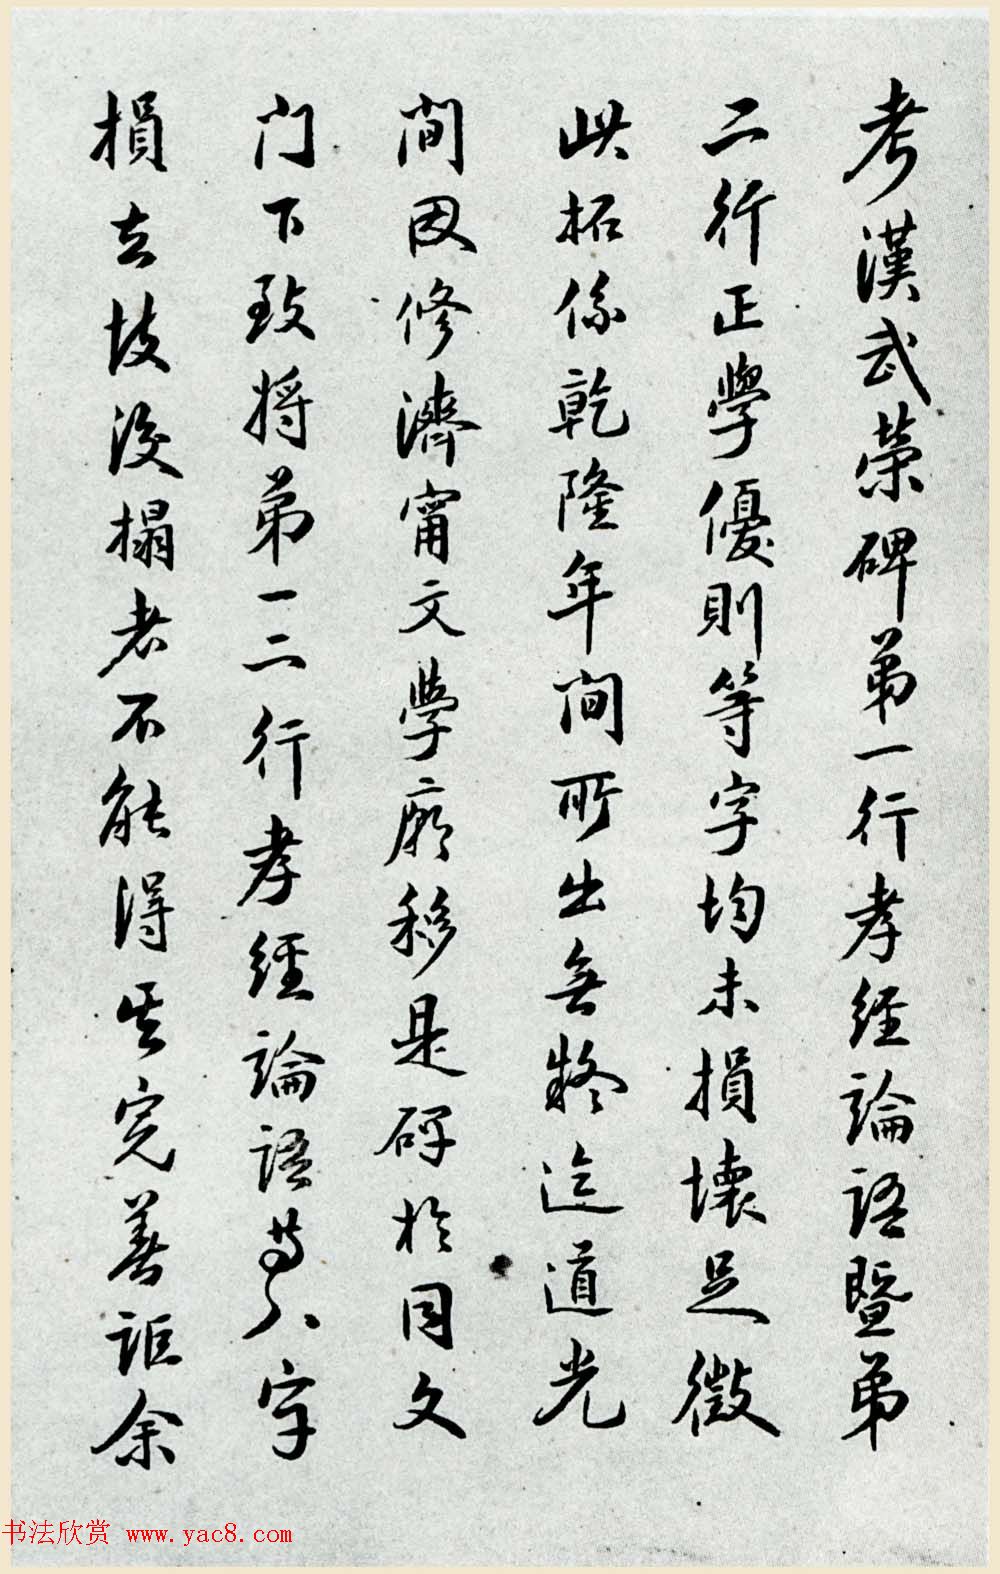 考漢武榮碑弟一行孝經論語暨弟
二行正學優則等字均未損壞足徵
此拓係乾隆年間所出無疑迄道光
間因修濟甯文學廟移是碑於同文
门下致將弟一二行孝經論語等八字
損去故後搨者不能得其完善詎余
书法欣赏 www.yac8.com